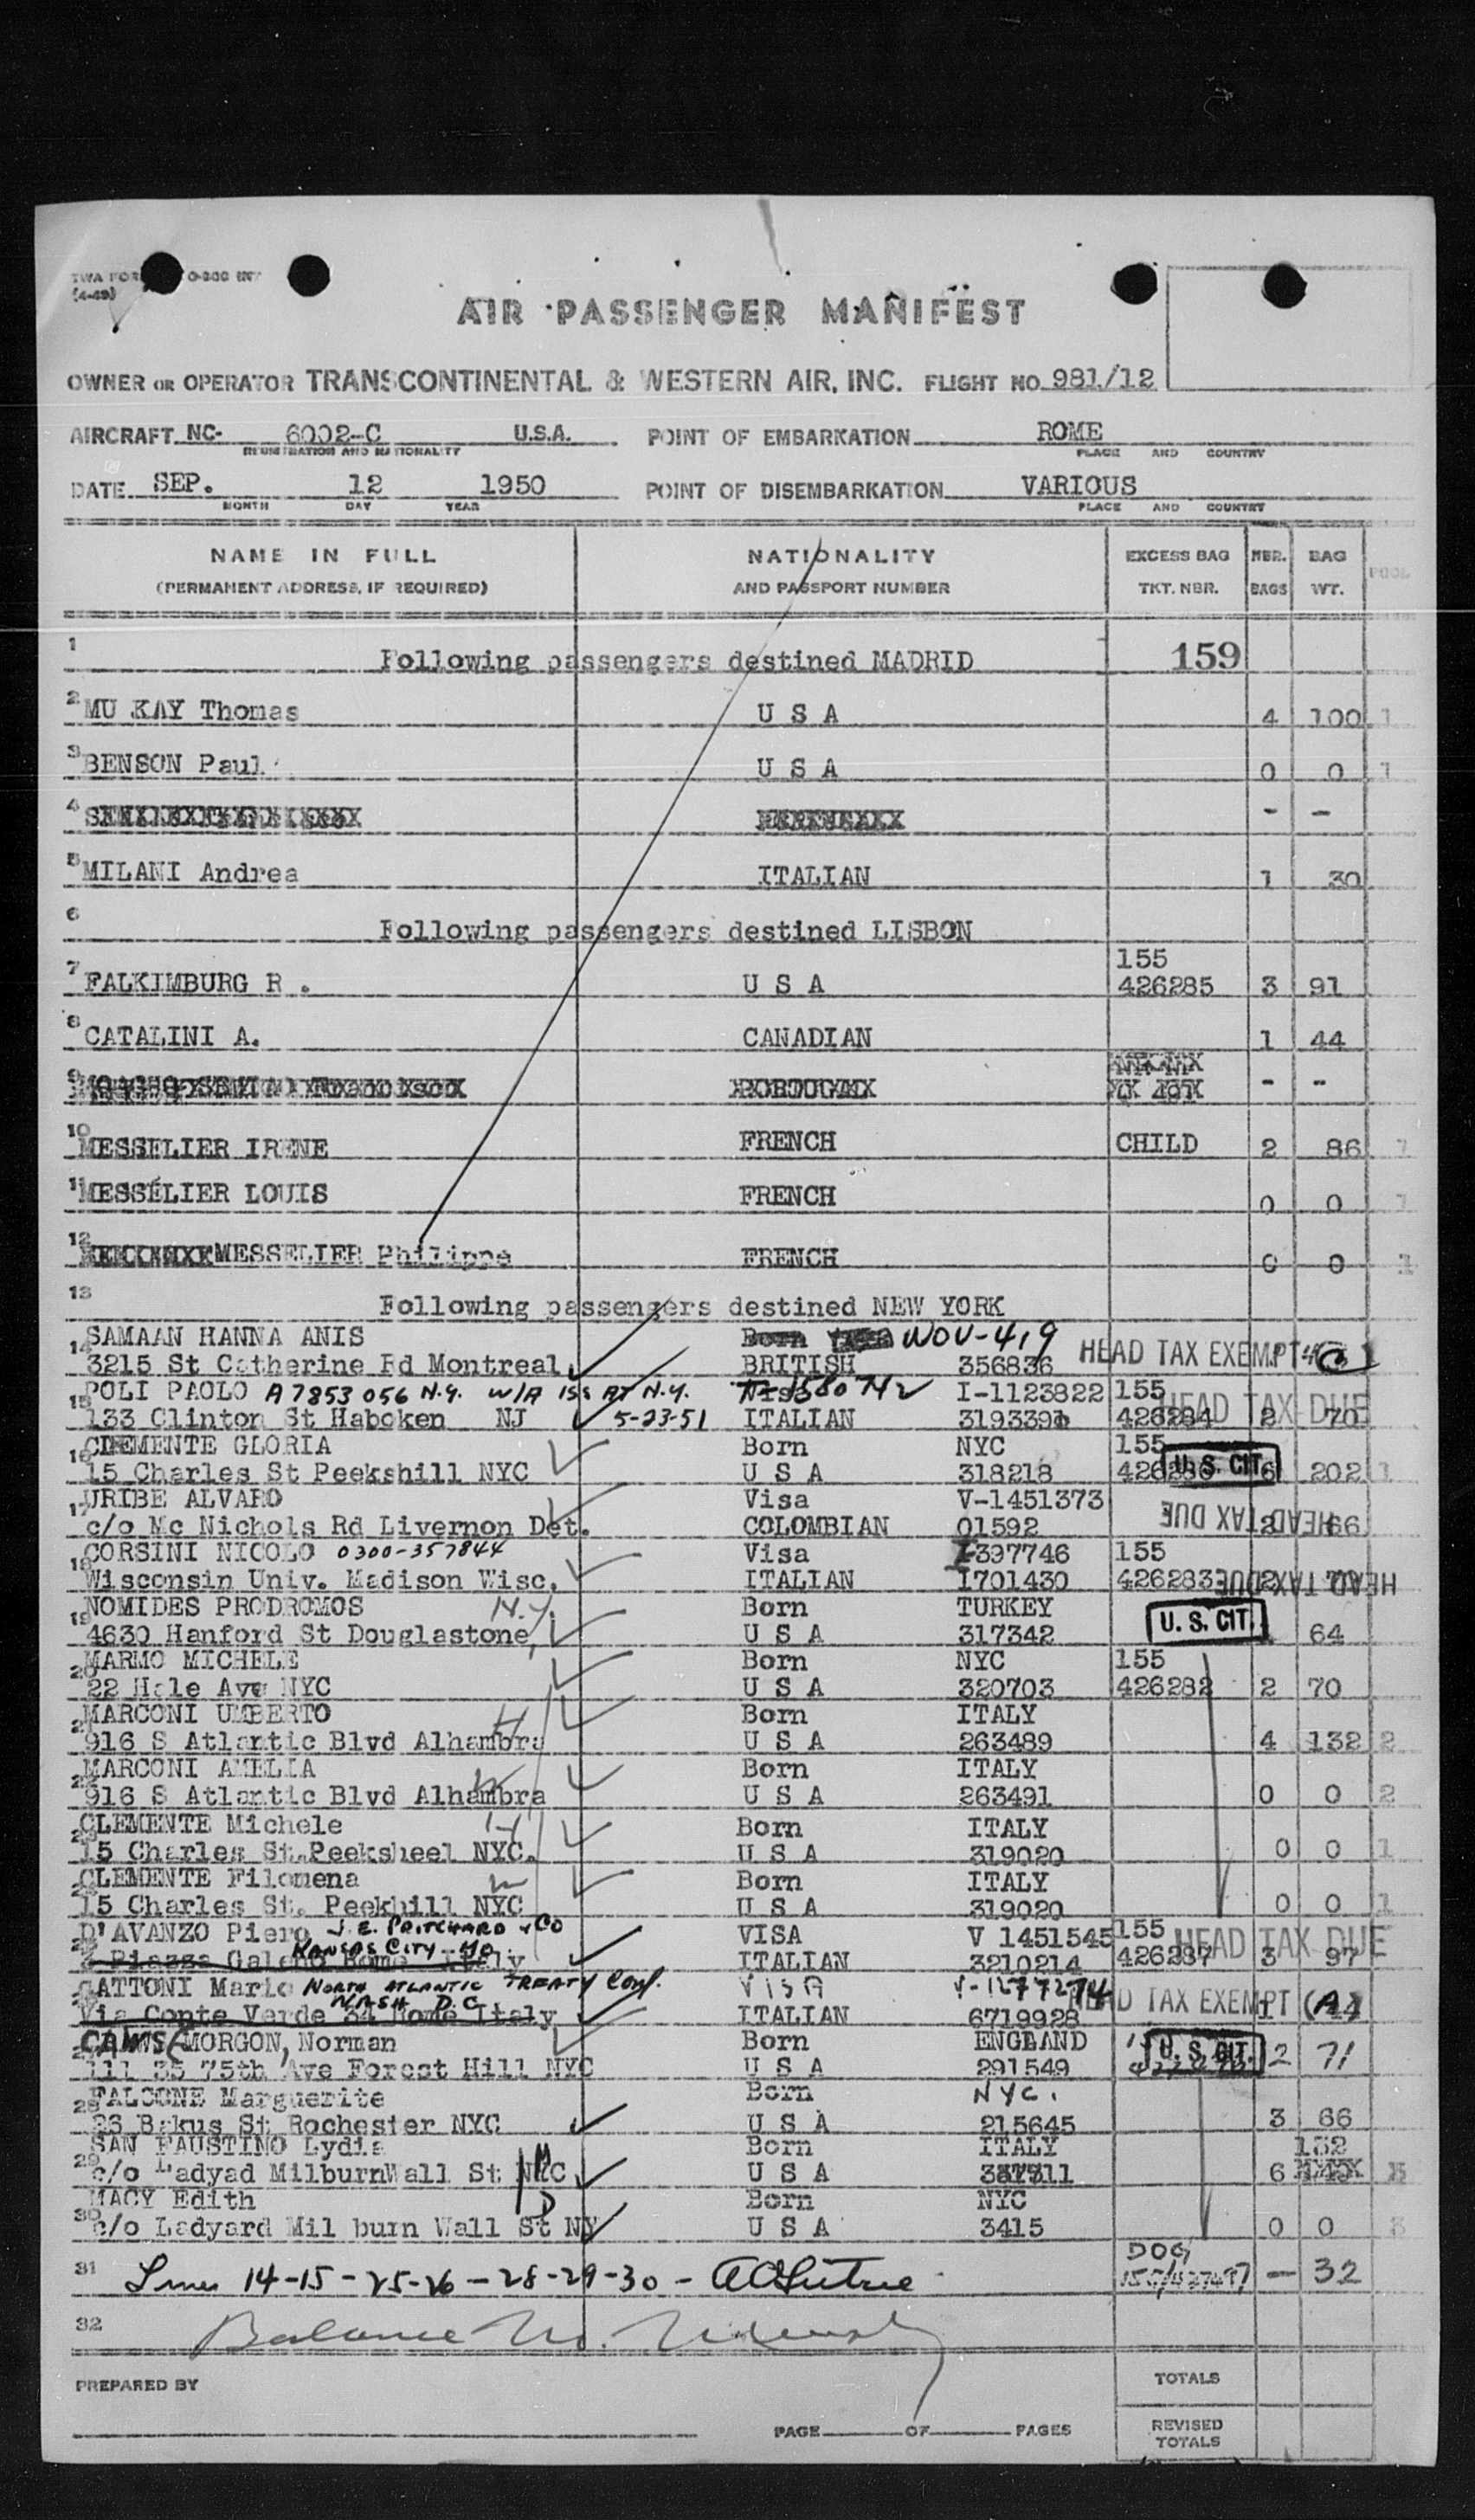 TWA FOR 0-200 INT
(4-49)
AIR PASSENGER MANIFEST
OWNER OR OPERATOR TRANSCONTINENTAL & WESTERN AIR, INC. FLIGHT NO. 981/12
AIRCRAFT NC- 6002-C U.S.A. POINT OF EMBARKATION ROME
REGISTRATION AND NATIONALITY PLACE AND COUNTRY
DATE SEP. 12 1950 POINT OF DISEMBARKATION VARIOUS
MONTH DAY YEAR PLACE AND COUNTRY
NAME IN FULL NATIONALITY EXCESS BAG NBR. BAG
(PERMANENT ADDRESS, IF REQUIRED) AND PASSPORT NUMBER TKT. NBR. BAGS WT. POOL
1 Following passengers destined MADRID 159
2 MU KAY Thomas U S A 4 100 1
3 BENSON Paul U S A 0 0 1
4 - -
5 MILANI Andrea ITALIAN 1 30
6 Following passengers destined LISBON
155
7 FALKIMBURG R . U S A 426285 3 91
8 CATALINI A. CANADIAN 1 44
9 - -
10 MESSELIER IRENE FRENCH CHILD 2 86 1
11 MESSELIER LOUIS FRENCH 0 0 1
12 MESSELIER Philippe FRENCH 0 0 1
13 Following passengers destined NEW YORK
SAMAAN HANNA ANIS Born WOV-419
14 3215 St Catherine Rd Montreal BRITISH 356836 HEAD TAX EXEMPT
POLI PAOLO A7853056 N.Y. W/A ISS AT N.Y. I-1123822 155
15 133 Clinton St Haboken NJ 5-23-51 ITALIAN 426284 2 70 HEAD TAX DUE
CLEMENTE GLORIA Born NYC 155
16 15 Charles St Peekshill NYC U S A 318218 426286 U.S. CIT. 6 202 1
URIBE ALVARO Visa V-1451373
17 c/o Mc Nichols Rd Livernon Det. COLOMBIAN 01592 HEAD TAX DUE 2 66
CORSINI NICOLO 0300-357844 Visa I-397746 155
18 Wisconsin Univ. Madison Wisc. ITALIAN 1701430 426283 2 HEAD TAX DUE
NOMIDES PRODROMOS N.Y. Born TURKEY
19 4630 Hanford St Douglastone, U S A 317342 U.S. CIT. 64
MARMO MICHELE Born NYC 155
20 22 Hale Ave NYC U S A 320703 426282 2 70
MARCONI UMBERTO H Born ITALY
21 916 S Atlantic Blvd Alhambra U S A 263489 4 132 2
MARCONI AMELIA W Born ITALY
22 916 S Atlantic Blvd Alhambra U S A 263491 0 0 2
CLEMENTE Michele H Born ITALY
23 15 Charles St.Peeksheel NYC. U S A 319020 0 0 1
CLEMENTE Filomena W Born ITALY
24 15 Charles St. Peekhill NYC U S A 319020 0 0 1
D'AVANZO Piero J. E. PRITCHARD & CO VISA V 1451545 155
KANSAS CITY-MO.
25 2 Piazza Galeno Rome Italy ITALIAN 3210214 426287 HEAD TAX DUE 3 97
GATTONI Mario NORTH ATLANTIC TREATY Conf. VISA V-1677274
WASH D.C.
26 Via Conte Verde 34 Rome Italy ITALIAN 6719928 HEAD TAX EXEMPT (A) 1 44
MORGON, Norman Born ENGLAND
27 111 35 75th Ave Forest Hill NYC U S A 291549 U.S. CIT. 2 71
FALCONE Marguerite Born NYC.
28 26 Bakus St Rochester NYC U S A 215645 3 66
SAN FAUSTINO Lydia M Born ITALY 132
29 c/o Ladyad MilburnWall St NYC U S A 6
MACY Edith D Born NYC
30 c/o Ladyard Mil burn Wall St NY U S A 3415 0 0 3
DOG
31 Lines 14-15-25-26-28-29-30 - 155/427497 — 32
32 Balance
PREPARED BY TOTALS
PAGE OF PAGES REVISED
TOTALS